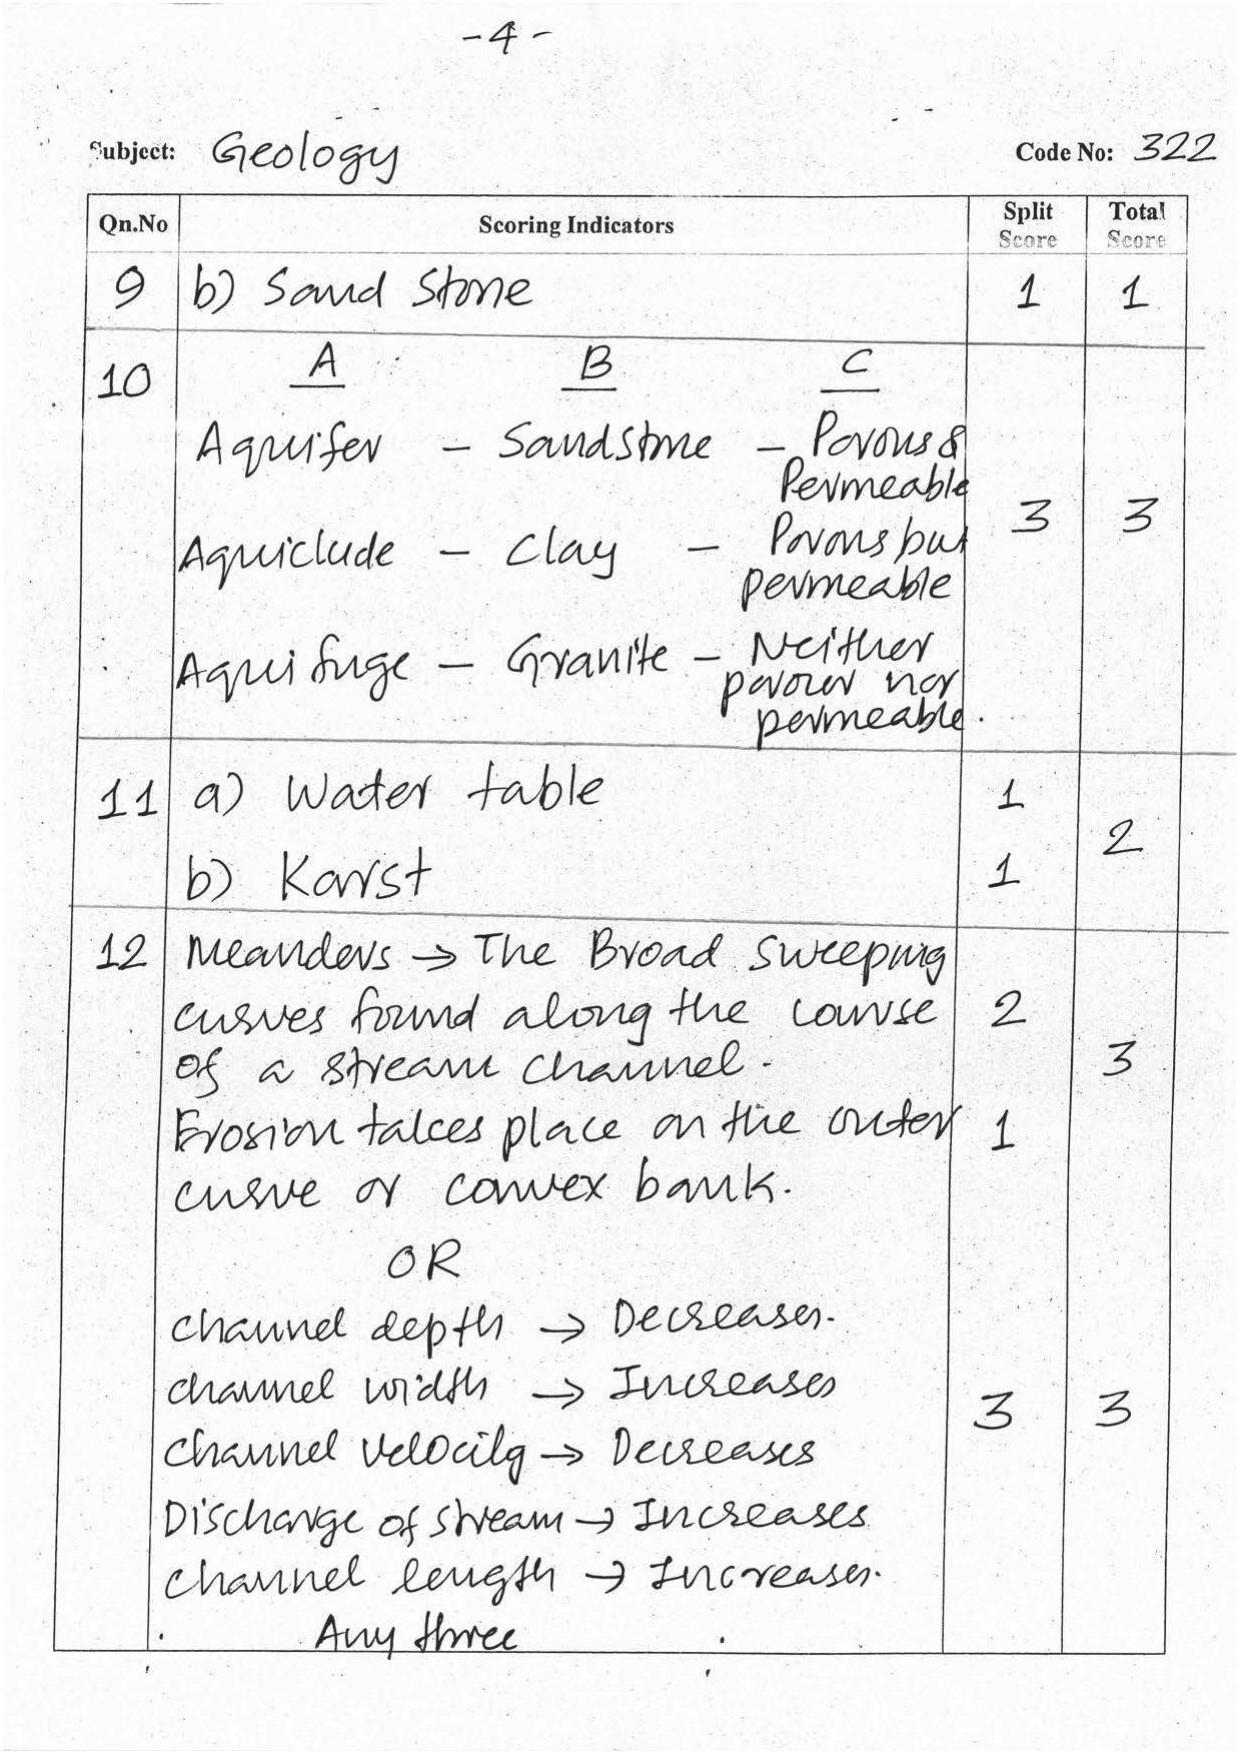 -4-
Subject: Geology Code No: 322
Qn.No Scoring Indicators Split Score Total Score
9 b) Sand Stone 1 1
10 A B C
Aquifer - Sandstone - Porous &
Permeable
3 3
Aquiclude - Clay - Porous but
permeable
Aquifuge - Granite - Neither
porour nor
permeable.
11 a) Water table 1
2
b) Karst 1
12 Meanders → The Broad sweeping
curves found along the course 2
of a stream channel.
3
Erosion takes place on the outer 1
curve or convex bank.
OR
channel depth → Decreases.
channel width → Increases
3 3
channel velocity → Decreases
Discharge of stream → Increases
channel length → Increases.
Any three